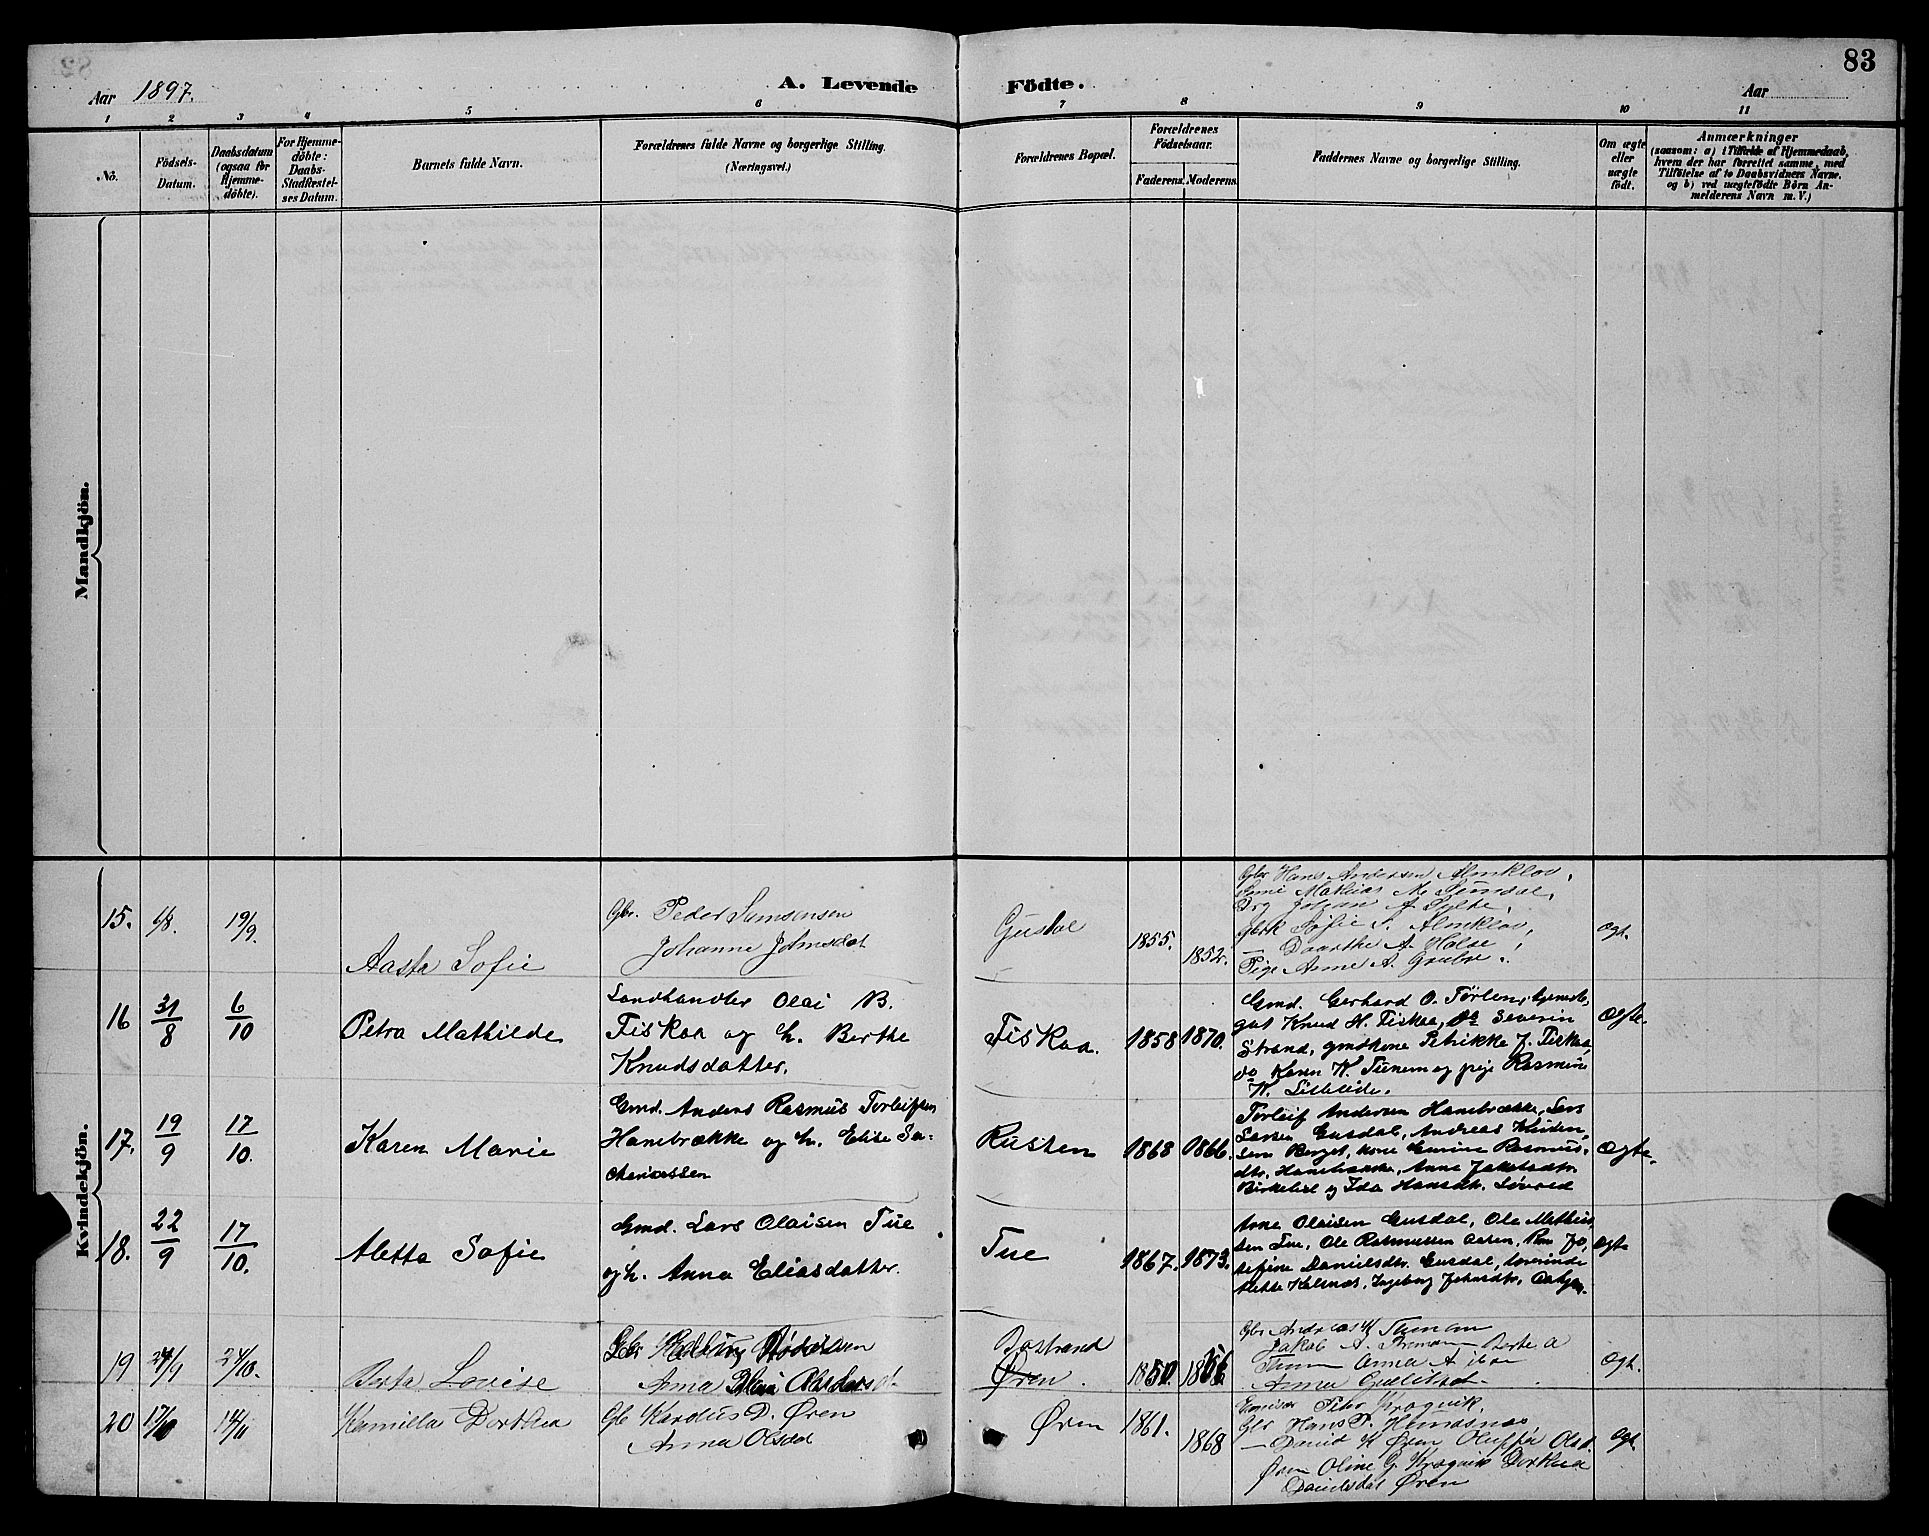 83
Aar 1897.
A. Levende Födte.
Aar
1 2 3 4 5 6 7 8 9 10 11
No.
Födsels-
Datum.
Daabsdatum
(ogsaa for
Hjemme-
döbte).
For Hjemme-
döbte:
Daabs-
Stadfæstel-
ses Datum.
Barnets fulde Navn.
Forældrenes fulde Navne og borgerlige Stilling.
(Næringsvei.)
Forældrenes Bopæl.
Forældrenes
Födselsaar.
Faderens. Moderens.
Faddernes Navne og borgerlige Stilling.
Om ægte
eller
uægte
født.
Anmærkninger
(saasom: a) i Tilfælde af Hjemmedaab,
hvem der har forrettet samme, med
Tilföielse af to Daabsvidners Navne,
og b) ved uægtefödte Börn An-
melderens Navn m. V.)
Mandkjön.
Kvindekjön.
15. 6/8. 19/9.
Aasta Sofie
Gbr. Peder Samsonsen
Johanne Johnsdat
Gusdal
1855. 1852.
Gbr Hans Andersen Almklov,
Mathias M. Sundal,
Johan A. Sylte,
Gbrk Sofie P. Almklov,
— Daarthe A. Halse,
Pige Anne A.
Ogt.
16 31/8 6/10
Petra Mathilde
Landhandler Olai B.
Fiskaa og h. Berthe
Knudsdatter.
Fiskaa.
1858 1870.
Gmd. Gerhard O. Tørlen,
gut Knud H. Fiskaa, do Severin
Strand, gmdkone Petrikke J. Fiskaa,
do Karen K. Tunem og pige Rasmine
K. Lillebø.
Ægte.
17. 19/9 17/10.
Karen Marie
Gmd. Anders Rasmus Torleifsen
Hanebrække og h. Elise Za-
chariassen
Rusten
1868 1866.
Torleif Andersen Hanebrække, Lars
Larsen Gusdal, Andreas
sen Berget, kone Rasmus-
dtr. Hanebrække, Anne Jakobsdtr.
og Ida Hansdtr. Løvred
Ægte.
18. 22/9 17/10.
Aletta Sofie
Gmd. Lars Olaisen Tue
og h. Anna Eliasdatter.
Tue
1867. 1873.
Arne Olaisen Gusdal, Ole Mathias
sen Tue, Ole Rasmussen Aasen, Kone Jo-
sefine Danielsdtr. Gusdal,
Aletta Halsnæs, Ingeborg Johansdtr.
Ægte
19 24/9 24/10.
Berta Lovise
Gbr
Anna
Bastrand
Øren.
1850. 1856
Gbr Andreas K Tunem
Jakob A. Berte A
Tunem Anna A
Anna
Ogt.
20 17/10 14/11
Kamilla Dorthea
Gb Kardus D. Øren
Anna Olsdat
Øren
1861. 1868
Peter Kragvik.
Gbr Hans P. Hundsnæs
— David K Øren Oluffa Olsd.
Øren Oline G. Kragvik Dorthea
Danielsdat Øren
Ogt